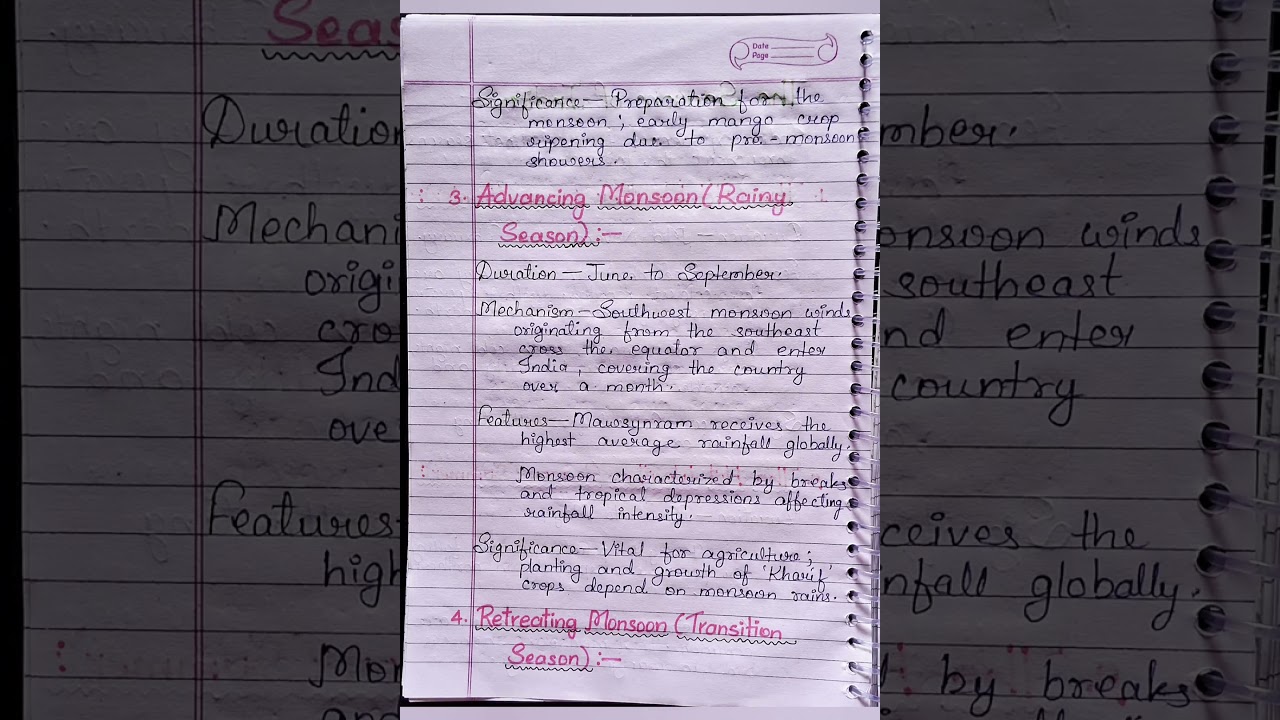 Date
Page
Significance — Preparation for the
monsoon ; early mango crop
ripening due to pre-monsoon
showers.
3. Advancing Monsoon (Rainy
Season) :—
Duration — June to September.
Mechanism — Southwest monsoon winds
originating from the southeast
cross the equator and enter
India, covering the country
over a month.
Features — Mawsynram receives the
highest average rainfall globally.
Monsoon characterized by breaks
and tropical depressions affecting
rainfall intensity.
Significance — Vital for agriculture ;
planting and growth of 'Kharif'
crops depend on monsoon rains.
4. Retreating Monsoon (Transition
Season) :—